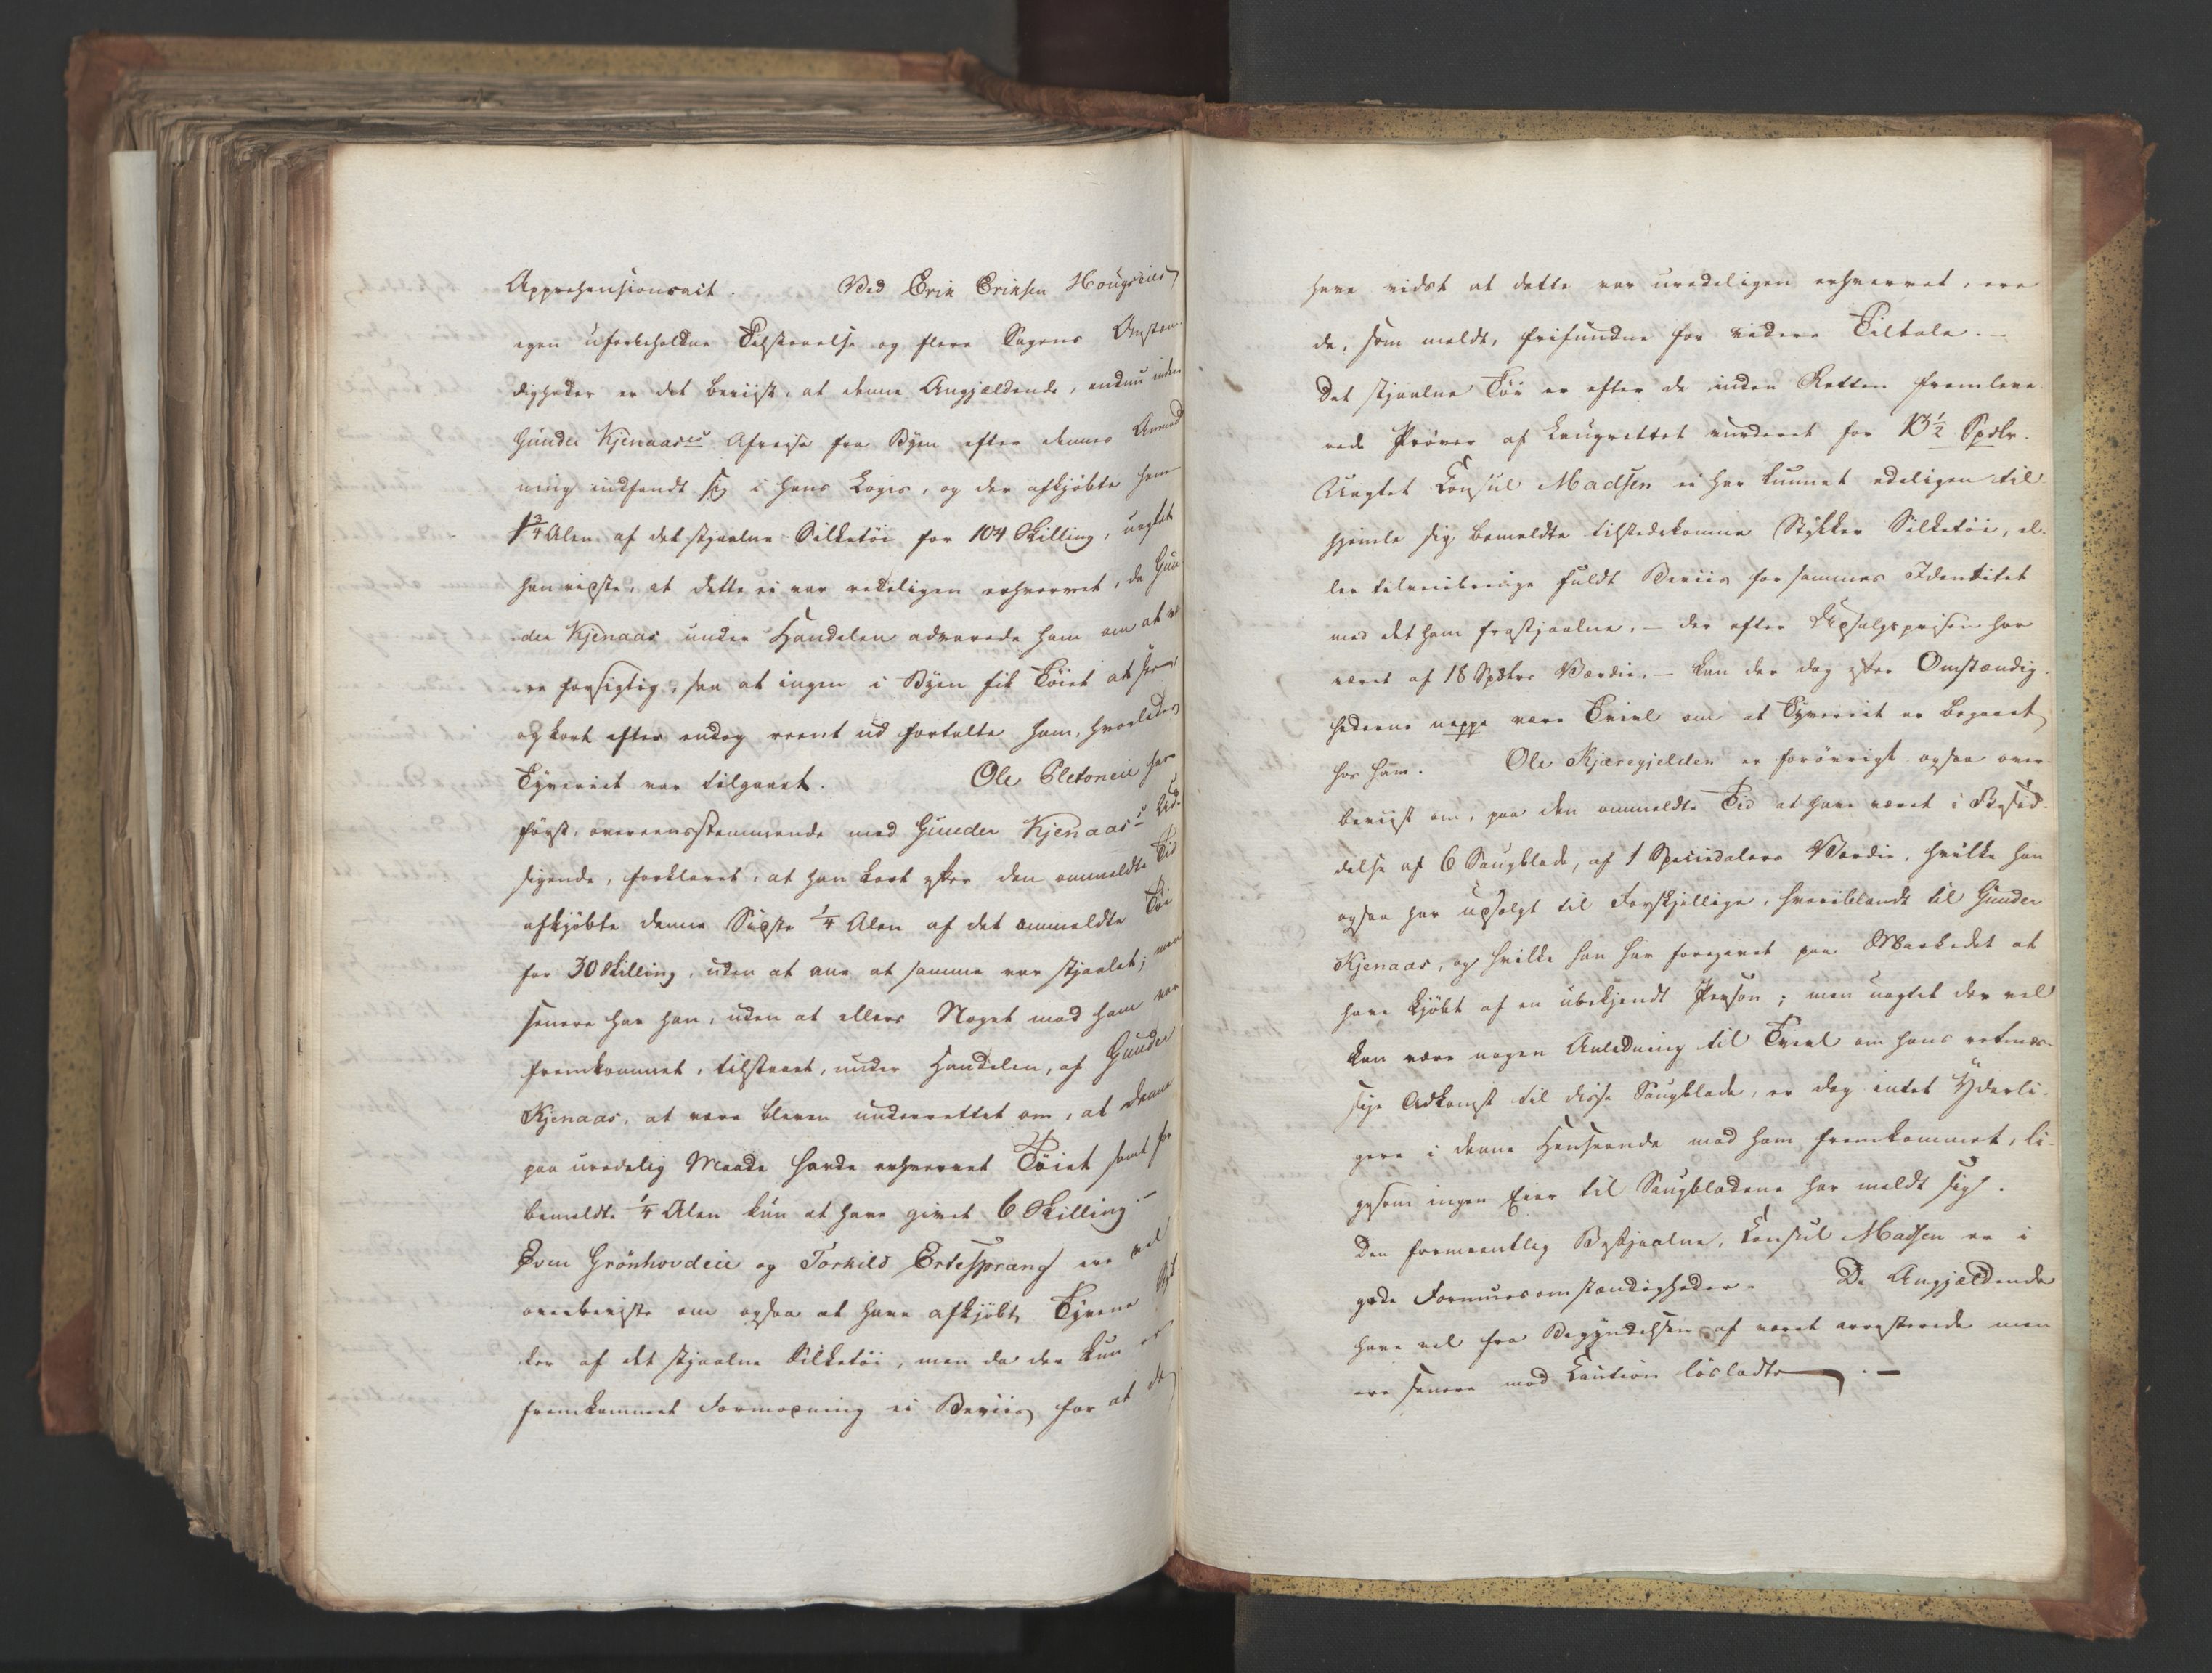 Apprehensionsact. Ved Erik Eriksen Hougseies
egen uforbeholdne Tilstaaelse og flere Sagens Omstæn-
digheder er det beviist, at denne Angjældende, endnu inden
Gunder Kjenaases Afreise fra Byen efter dennes Anmod
ning indfandt sig i hans Logis, og der afkjøbte ham
1 3/4 Alen af det stjaalne Silketøi for 104 Skilling, uagtet
han vidste, at dette ei var redeligen erhvervet, da Gun
der Kjenaas under Handelen advarede ham om at væ
re forsigtig, saa at ingen i Byen fik Tøiet at see,
og kort efter endog reent ud fortalte ham, hvorledes
Tyveriet var tilgaaet. Ole Pletoneie har
først, overeensstemmende med Gunder Kjenaas's Ud-
sigende, forklaret, at han kort efter den ommeldte Tid
afkjøbte denne Sidste 1/4 Alen af det ommeldte Tøi
for 30 Skilling, uden at ane at samme var stjaalet; men
senere har han, uden at ellers Noget mod ham var
fremkommet, tilstaaet, under Handelen, af Gunder
Kjenaas, at være bleven underrettet om, at denne
paa uredelig Maade havde erhvervet Tøiet samt for
bemeldte 1/4 Alen kun at have givet 6 Skilling.-
Even Grønhovdeie og Torkild Ertesprang ere vel
overbeviste om ogsaa at have afkjøbt Tyvene Styk
ker af det stjaalne Silketøi, men da der kun er
fremkommet Formodning ei Beviis for at de
have vidst at dette var uredeligen erhvervet, ere
de, som meldt, frifundne for videre Tiltale.-
Det stjaalne Tøi er efter de inden Retten fremleve-
rede Prøver af Laugrettet vurderet for 13 1/2 Spdlr.
Uagtet Consul Madsen ei har kunnet edeligen til
hjemle sig bemeldte tilstedekomne Stykker Silketøi, el-
ler tilveiebringe fuldt Beviis for sammes Identitet
med det ham frastjaalne, - der efter Udsalgsprisen har
været af 18 Spdlrs Værdie, - kan der dog efter Omstændig-
hederne neppe være Tvivl om at Tyveriet er begaaet
hos ham. Ole Kjæregjelden er forøvrigt ogsaa over-
beviist om, paa den ommeldte Tid at have været i Besid-
delse af 6 Saugblade, af 1 Speciedalers Værdie, hvilke han
ogsaa har udsolgt til Forskjellige, hvoriblandt til Gunder
Kjenaas, og hvilke han har foregivet paa Markedet at
have kjøbt af en ubekjendt Person; men uagtet der vel
kan være nogen Anledning til Tvivl om hans retmæs-
sige Adkomst til disse Saugblade, er dog intet Yderli-
gere i denne Henseende mod ham fremkommet, li-
gesom ingen Eier til Saugbladene har meldt sig.
Den formeentlig Bestjaalne, Consul Madsen er i
gode Formuesomstændigheder. De Angjældende
have vel fra Begyndelsen af været arresterede men
ere senere mod Caution løsladte.-